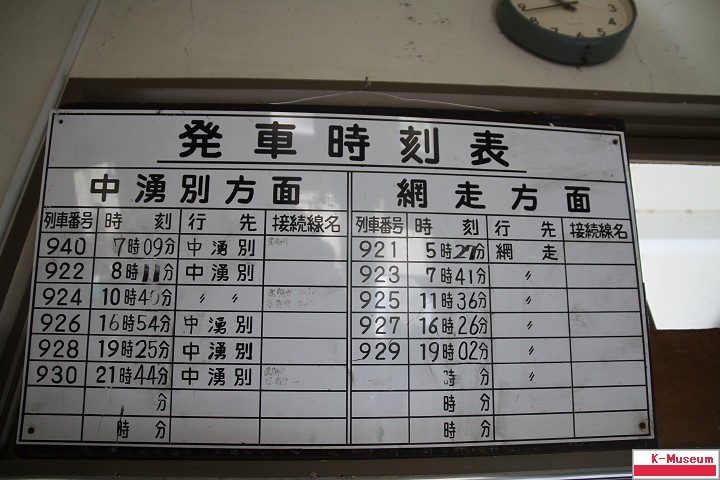 発車時刻表
中湧別方面 網走方面
列車番号 時刻 行先 接続線名 列車番号 時刻 行先 接続線名
940 7時09分 中湧別 921 5時27分 網走
922 8時11分 中湧別 923 7時41分 〃
924 10時40分 〃 〃 925 11時36分 〃
926 16時54分 中湧別 927 16時26分 〃
928 19時25分 中湧別 929 19時02分 〃
930 21時44分 中湧別 時 分 〃
分 時 分
時 分 時 分
K-Museum